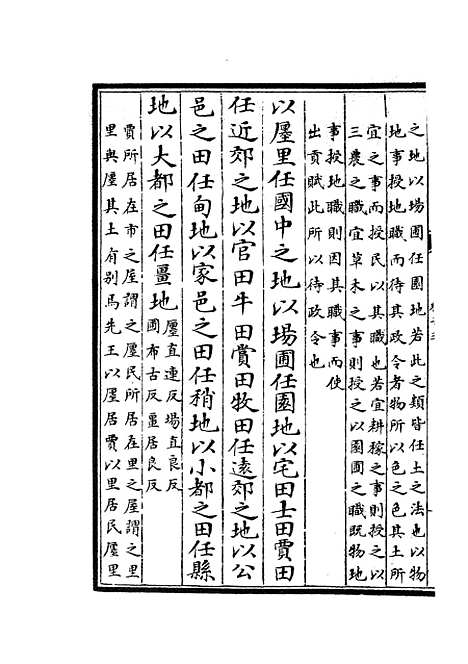 之地以場圃任園地若此之類皆任土之法也以物
地事授地職而待其政令者物所以色之色其土所
宜之事而授民以其職也若宜耕稼之事則授之以
三農之職宜草木之事則授之以園圃之職旣物地
事授地職則因其職事而使
出貢賦此所以待政令也
以廛里任國中之地以場圃任園地以宅田士田賈田
任近郊之地以官田牛田賞田牧田任遠郊之地以公
邑之田任甸地以家邑之田任稍地以小都之田任縣
地以大都之田任畺地
廛直連反場直良反
圃布古反畺居良反
賈所居在市之屋謂之廛民所居在里之屋謂之里
里與廛其土有别焉先王以廛居賈以里居民廛里